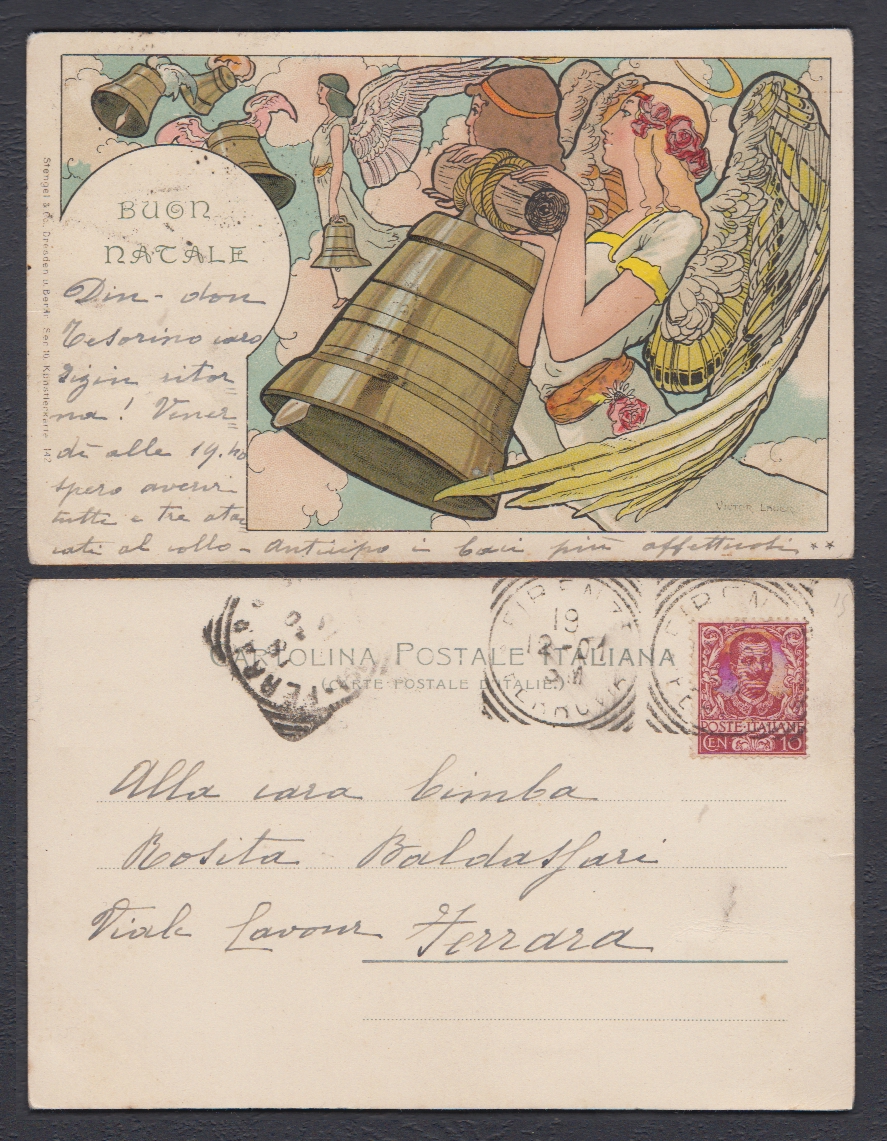 BUON
NATALE
Din - don
Tesorino caro
Gigin ritor
na! Vener
dì alle 19.40
spero avervi
tutte e tre attac
cate al collo - Anticipo i baci più affettuosi
Stengel & Co., Dresden u. Berlin Ser. 16. Künstlerkarte 147
VICTOR
CARTOLINA POSTALE ITALIANA
(CARTE POSTALE D'ITALIE.)
FERRARA
FIRENZE
19
12-01
FERROVIA
FIRENZE
POSTE·ITALIANE
CEN 10
Alla cara bimba
Rosita Baldassari
Viale Cavour Ferrara